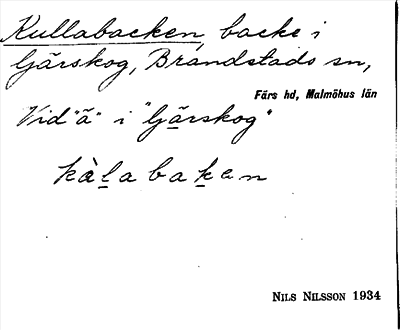 Kullabacken, backe i
Gärskog, Brandstads sn,
Färs hd, Malmöhus län
Vid "ä" i "Gärskog"
kàḻabaḵen
NILS NILSSON 1934